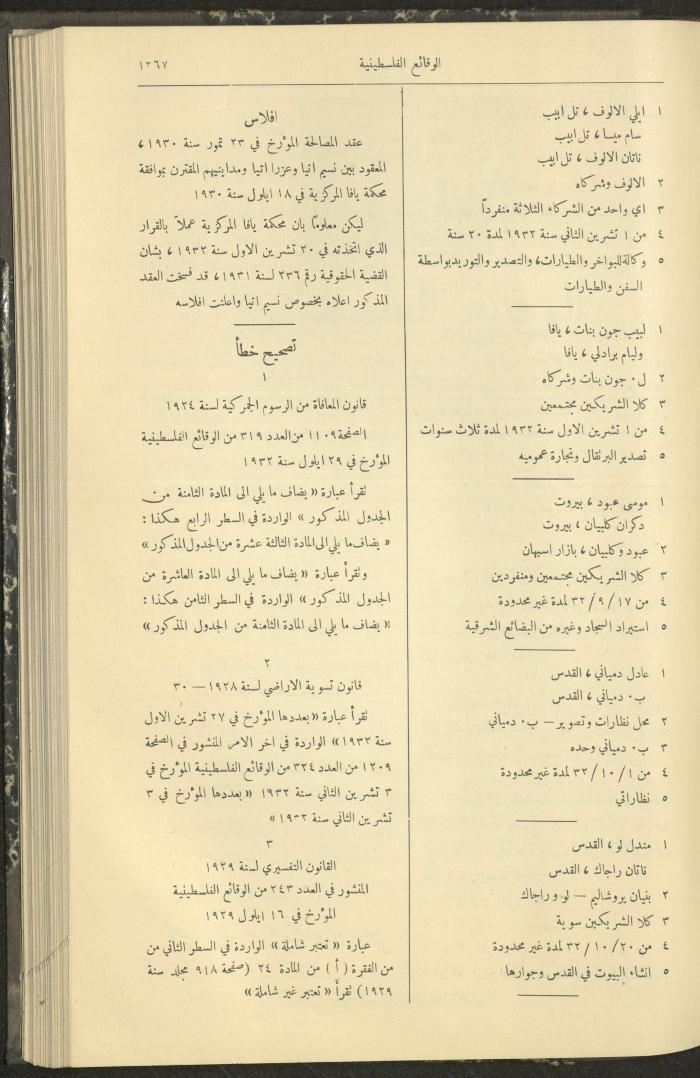 الوقائع الفلسطينية
١٣٦٧
١ ايلي الالوف ، تل ابيب
سام ميسا ، تل ابيب
ناتان الالوف ، تل ابيب
٢ الالوف وشركاه
٣ اي واحد من الشركاء الثلاثة منفرداً
٤ من ١ تشرين الثاني سنة ١٩٣٢ لمدة ٢٠ سنة
٥ وكالة للبواخر والطيارات، والتصدير والتوريد بواسطة
السفن والطيارات
١ لبيب جون بنات ، يافا
وليام برادلي ، يافا
٢ ل. جون بنات وشركاه
٣ كلا الشريكين مجتمعين
٤ من ١ تشرين الاول سنة ١٩٣٢ لمدة ثلاث سنوات
٥ تصدير البرتقال وتجارة عموميه
١ موسى عبود ، بيروت
دكران كلبيان ، بيروت
٢ عبود وكلبيان ، بازار اسبهان
٣ كلا الشريكين مجتمعين ومنفردين
٤ من ١٧/٩/٣٢ لمدة غير محدودة
٥ استيراد السجاد وغيره من البضائع الشرقية
١ عادل دمياني ، القدس
ب. دمياني ، القدس
٢ محل نظارات وتصوير — ب. دمياني
٣ ب. دمياني وحده
٤ من ١/١٠/٣٢ لمدة غير محدودة
٥ نظاراتي
١ مندل لو ، القدس
ناتان راجاك ، القدس
٢ بنيان يروشاليم — لو وراجاك
٣ كلا الشريكين سوية
٤ من ٢٠/١٠/٣٢ لمدة غير محدودة
٥ انشاء البيوت في القدس وجوارها
افلاس
عقد المصالحة المؤرخ في ٢٣ تموز سنة ١٩٣٠ ،
المعقود بين نسيم اتيا وعزرا اتيا ومداينيهم المقترن بموافقة
محكمة يافا المركزية في ١٨ ايلول سنة ١٩٣٠
ليكن معلومًا بان محكمة يافا المركزية عملاً بالقرار
الذي اتخذته في ٢٠ تشرين الاول سنة ١٩٣٢ ، بشان
القضية الحقوقية رقم ٢٣٦ لسنة ١٩٣١ ، قد فسخت العقد
المذكور اعلاه بخصوص نسيم اتيا واعلنت افلاسه
تصحيح خطأ
١
قانون المعافاة من الرسوم الجمركية لسنة ١٩٢٤
الصفحة ١١٠٩ من العدد ٣١٩ من الوقائع الفلسطينية
المؤرخ في ٢٩ ايلول سنة ١٩٣٢
تقرأ عبارة « يضاف ما يلي الى المادة الثامنة من
الجدول المذكور » الواردة في السطر الرابع هكذا :
« يضاف ما يلي الى المادة الثالثة عشرة من الجدول المذكور »
وتقرأ عبارة « يضاف ما يلي الى المادة العاشرة من
الجدول المذكور » الواردة في السطر الثامن هكذا :
« يضاف ما يلي الى المادة الثامنة من الجدول المذكور »
٢
قانون تسوية الاراضي لسنة ١٩٢٨ — ٣٠
تقرأ عبارة « بعددها المؤرخ في ٢٧ تشرين الاول
سنة ١٩٣٢ » الواردة في اخر الامر المنشور في الصفحة
١٢٠٩ من العدد ٣٢٤ من الوقائع الفلسطينية المؤرخ في
٣ تشرين الثاني سنة ١٩٣٢ « بعددها المؤرخ في ٣
تشرين الثاني سنة ١٩٣٢ »
٣
القانون التفسيري لسنة ١٩٢٩
المنشور في العدد ٢٤٣ من الوقائع الفلسطينية
المؤرخ في ١٦ ايلول ١٩٢٩
عبارة « تعتبر شاملة » الواردة في السطر الثاني من
من الفقرة ( أ ) من المادة ٢٤ (صفحة ٩١٨ مجلد سنة
١٩٢٩) تقرأ « تعتبر غير شاملة »